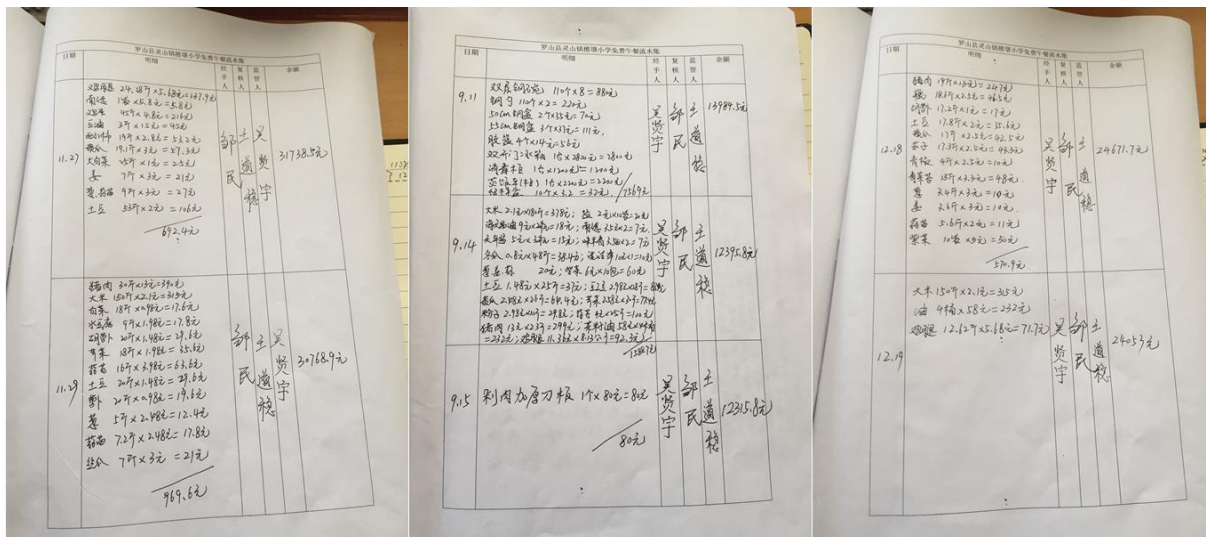 罗山县灵山镇檀墩小学免费午餐流水账
日期 明细 经手人 复核人 监管人 余额
11.27
鸡腿 24.28斤×5.68元=137.9元
南德 1袋×5.8元=5.8元
鸡蛋 45斤×4.8元=216元
豆油 3斤×15元=45元
西红柿 19斤×2.8元=53.2元
黄瓜 19.1斤×3元=57.3元
大白菜 25斤×1元=25元
姜 7斤×3元=21元
葱、蒜苗 9斤×3元=27元
土豆 53斤×2元=106元
692.4元
邹民 王道稳 吴贤宇 31738.5元
11.28
猪肉 30斤×13元=390元
大米 150斤×2.1元=315元
白菜 18斤×0.98元=17.6元
水豆腐 9斤×1.98元=17.8元
胡萝卜 20斤×1.48元=29.6元
芹菜 18斤×1.98元=35.6元
蒜苔 16斤×3.98元=63.6元
土豆 20斤×1.48元=29.6元
萝卜 20斤×0.98元=19.6元
葱 5斤×2.48元=12.4元
蒜苗 7.2斤×2.48元=17.8元
丝瓜 7斤×3元=21元
969.6元
邹民 王道稳 吴贤宇 30768.9元
罗山县灵山镇檀墩小学免费午餐流水账
日期 明细 经手人 复核人 监管人 余额
9.11
双层钢碗 110个×8=880元
钢勺 110个×2=220元
50cm钢盆 2个×35元=70元
55cm钢盆 3个×37元=111元
胶盆 4个×14元=56元
双开门冰箱 1台×2800元=2800元
消毒柜 1台×1200元=1200元
1台×2200元=2200元
10个×3.2=32元 7569元
吴贤宇 邹民 王道稳 13984.5元
9.14
大米 2.1元×180斤=378元; 盐 2元×10袋=20元
9元×2=18元; 南德 3.5元×2=7元
5元×3=15元; 3.5元×2=7元
冬瓜 0.8元×48斤=38.4元; 10元×1=10元
葱姜蒜 20元; 紫菜 6元×10包=60元
土豆 1.48元×25斤=37元;
黄瓜 2.48元×26斤=64.4元;
猪肉 13元×23斤=299元; 菜籽油 58元×4桶
=232元; 鸡腿 11.36×8.13=92.3元
吴贤宇 邹民 王道稳 12395.8元
9.15
剁肉加厚刀板 1个×80元=80元
80元
吴贤宇 邹民 王道稳 12315.8元
罗山县灵山镇檀墩小学免费午餐流水账
日期 明细 经手人 复核人 监管人 余额
12.18
猪肉 19斤×13元=247元
18.6斤×2.5元=46.5元
胡萝卜 17.2斤×1元=17元
土豆 17.8斤×2元=35.6元
黄瓜 17斤×2.5元=42.5元
茄子 17.3斤×2.5元=43.3元
青椒 4斤×2.5元=10元
蒜苔 15斤×3.3元=48元
葱 3.4斤×3元=10元
姜 3.6斤×3元=10元
蒜苗 5.6斤×2元=11元
紫菜 10袋×5元=50元
570.9元
吴贤宇 邹民 王道稳 24671.7元
12.19
大米 150斤×2.1元=315元
油 4桶×58元=232元
鸡腿 12.62斤×5.68元=71.7元
吴贤宇 邹民 王道稳 24053元